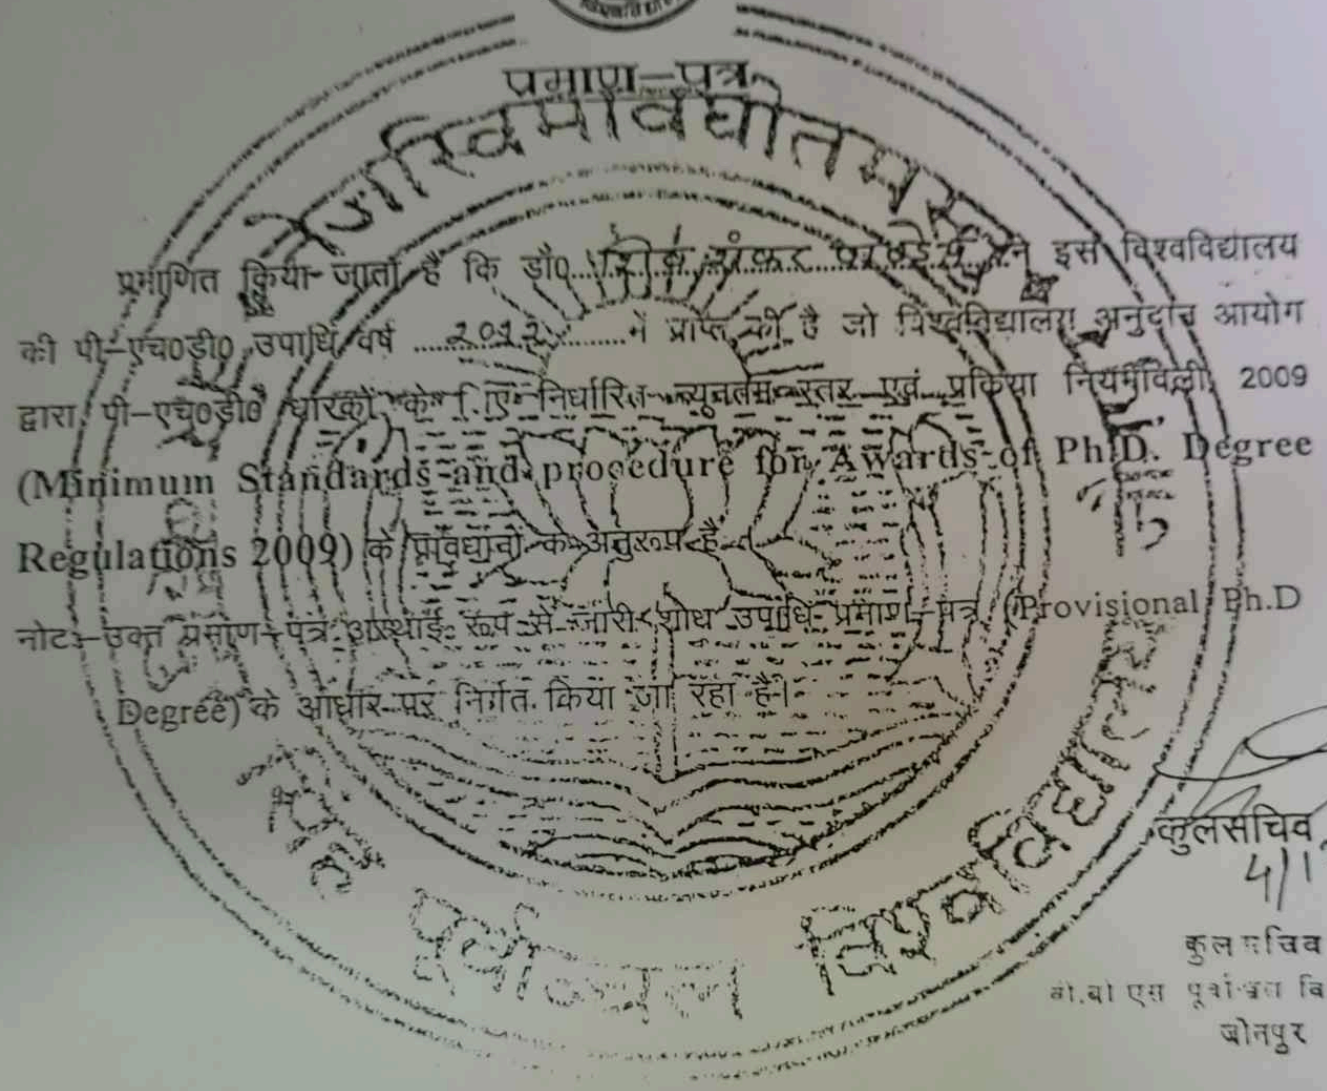 प्रमाण-पत्र
तेजस्विनावधीतमस्तु
प्रमाणित किया जाता है कि डॉ0 ने इस विश्वविद्यालय
की पी-एच0डी0 उपाधि वर्ष में प्राप्त की है जो विश्वविद्यालय अनुदान आयोग
द्वारा पी-एच0डी0 धारकों के लिए निर्धारित न्यूनतम स्तर एवं प्रकिया नियमावली 2009
(Minimum Standards and procedure for Awards of Ph.D. Degree
Regulations 2009) के प्रावधानों के अनुरूप है
नोट:- उक्त प्रमाण-पत्र अस्थाई रूप से जारी शोध उपाधि प्रमाण-पत्र (Provisional Ph.D
Degree) के आधार पर निर्गत किया जा रहा है।
सिंह पूर्वाञ्चल विश्वविद्यालय
कुलसचिव
कुलसचिव
जौनपुर